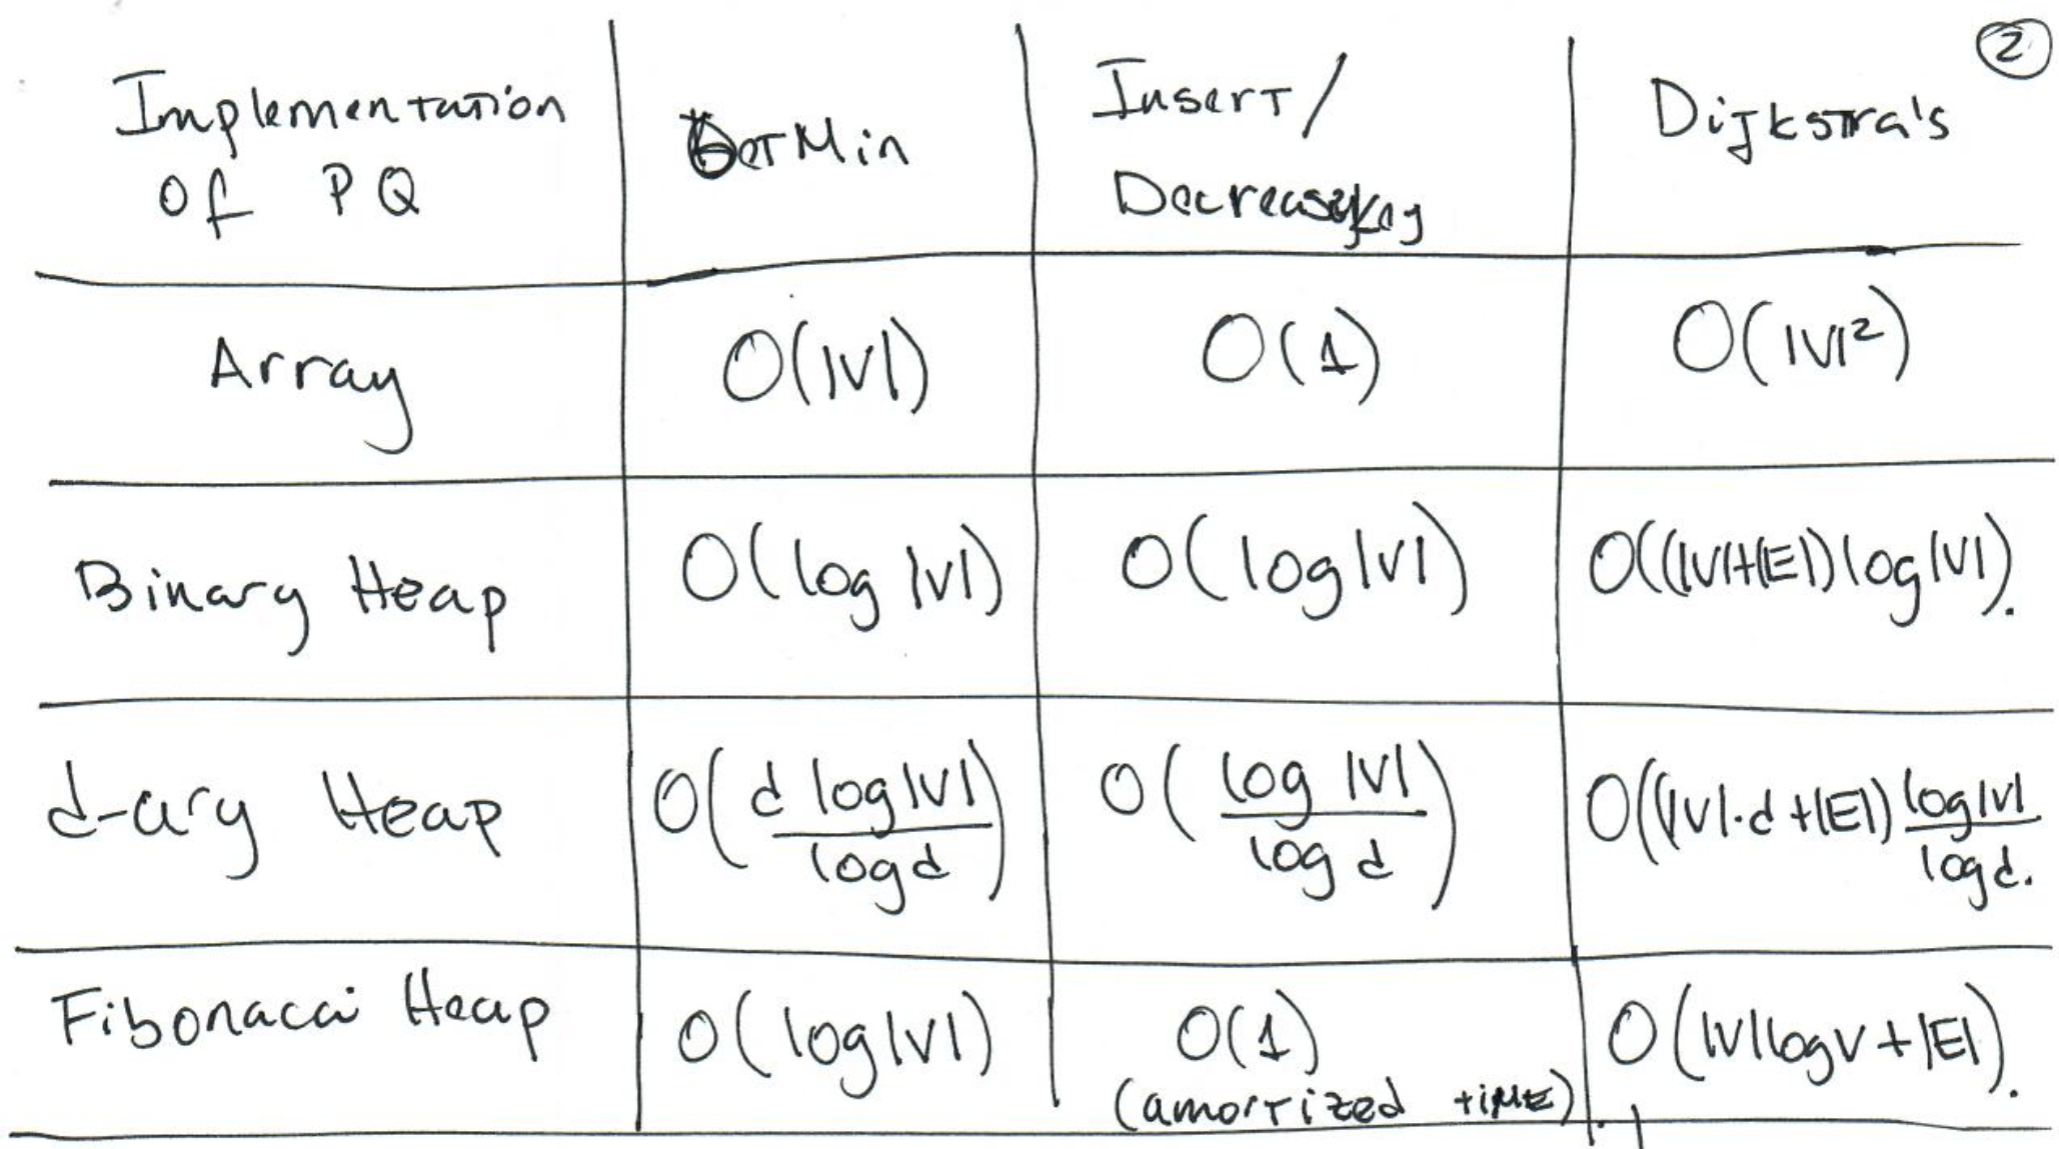 ②
Implementation
of PQ
GetMin
Insert/
DecreaseKey
Dijkstra's
Array
O(|V|)
O(1)
O(|V|²)
Binary Heap
O(log |V|)
O(log |V|)
O((|V|+|E|) log |V|).
d-ary Heap
O(d log |V| / log d)
O(log |V| / log d)
O((|V|·d + |E|) log |V| / log d.
Fibonacci Heap
O(log |V|)
O(1)
(amortized time)
O(|V| log V + |E|).